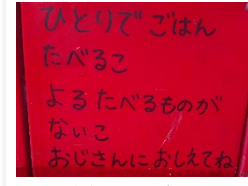 ひとりでごはん
たべるこ
よるたべるものが
ないこ
おじさんにおしえてね